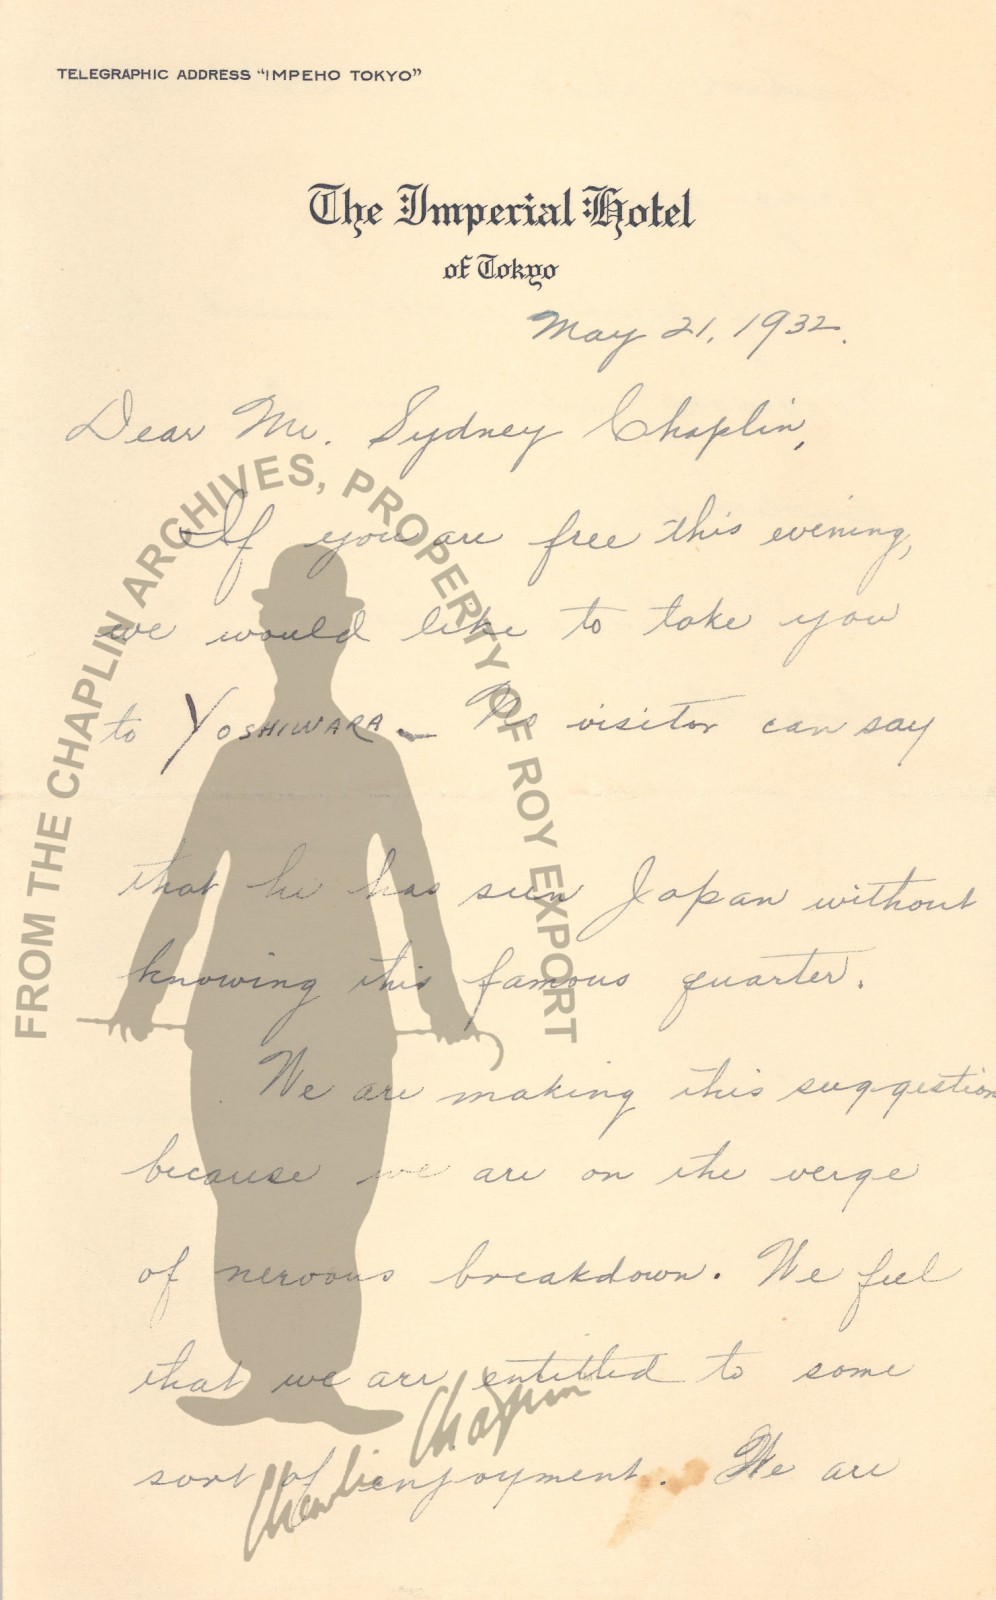 TELEGRAPHIC ADDRESS "IMPEHO TOKYO"
The Imperial Hotel
of Tokyo
May 21, 1932.
Dear Mr. Sydney Chaplin,
If you are free this evening,
we would like to take you
to YOSHIWARA - No visitor can say
that he has seen Japan without
knowing this famous quarter.
We are making this suggestion
because we are on the verge
of nervous breakdown. We feel
that we are entitled to some
sort of enjoyment. We are
FROM THE CHAPLIN ARCHIVES, PROPERTY OF ROY EXPORT
Charlie Chaplin